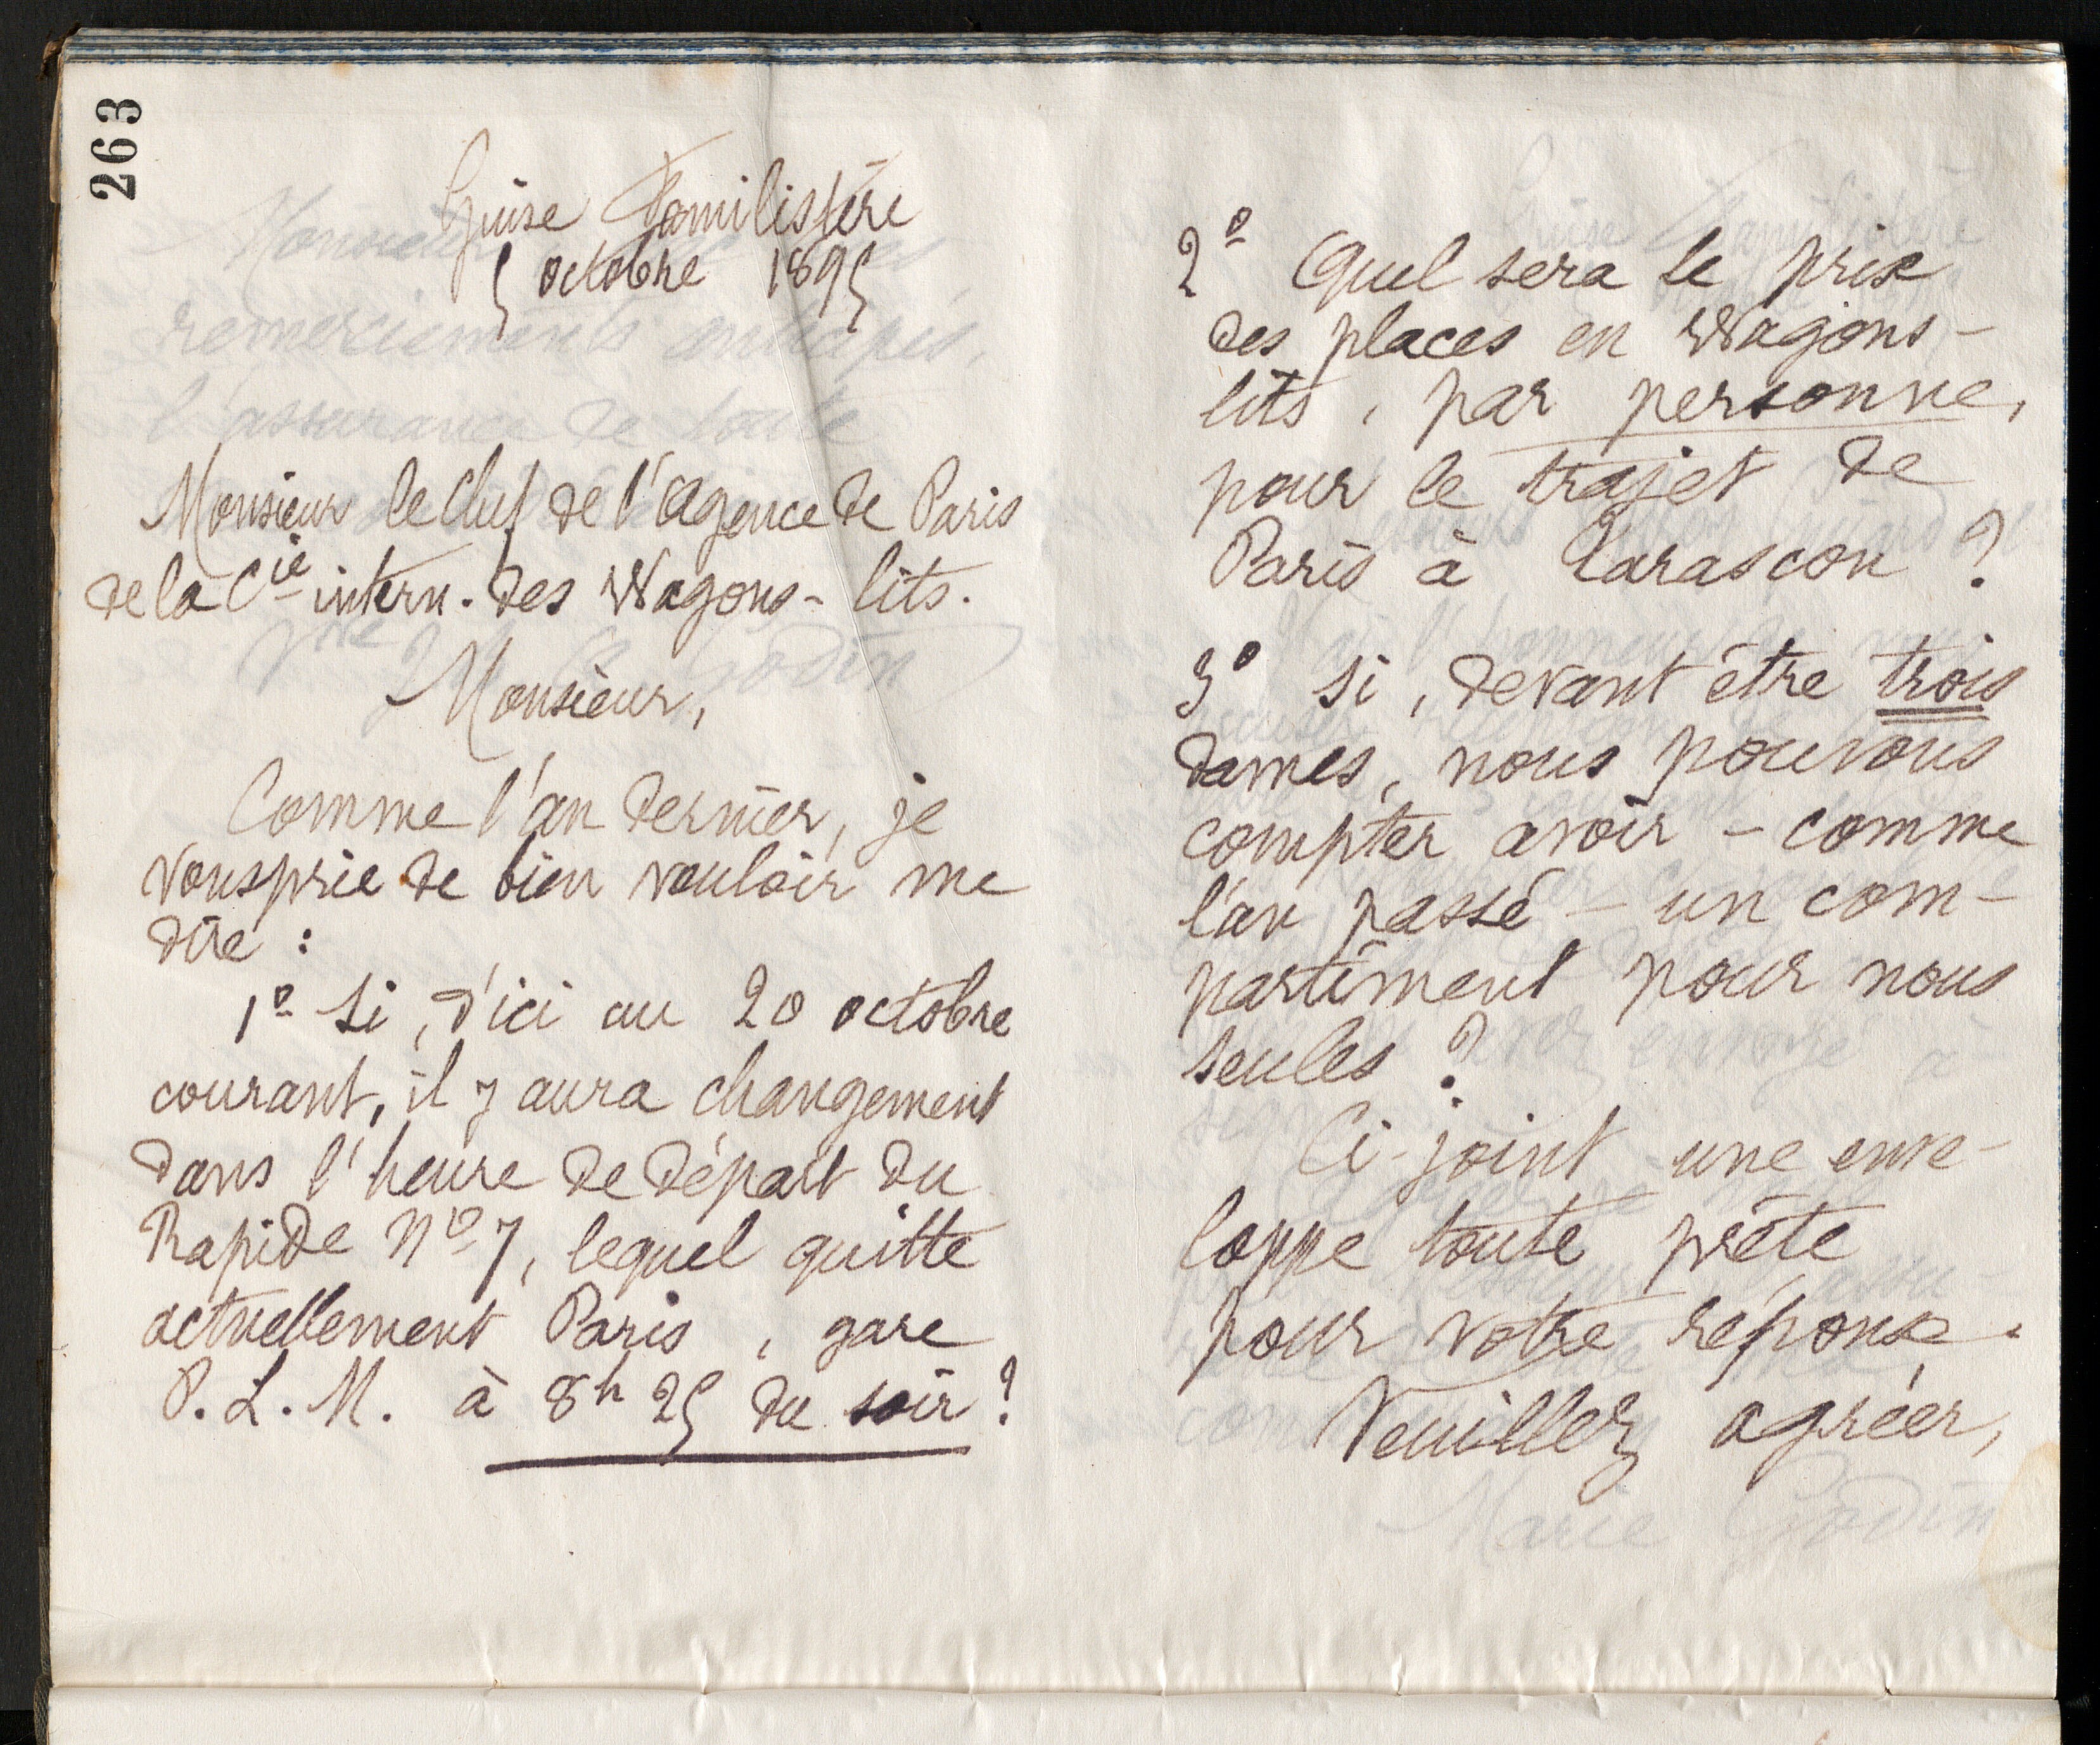 263
Guise Familistère
5 octobre 1895
Monsieur le Chef de l'Agence de Paris
de la Cie intern. des Wagons-lits.
Monsieur,
Comme l'an dernier, je
vous prie de bien vouloir me
dire :
1º Si, d'ici au 20 octobre
courant, il y aura changement
dans l'heure de départ du
Rapide Nº 7, lequel quitte
actuellement Paris, gare
P. L. M. à 8h 25 du soir ?
2º Quel sera le prix
des places en Wagons-
lits, par personne,
pour le trajet de
Paris à Tarascon ?
3º Si, devant être trois
dames, nous pouvons
compter avoir - comme
l'an passé - un com-
partiment pour nous
seules ?
Ci-joint une enve-
loppe toute prête
pour votre réponse.
Veuillez agréer,